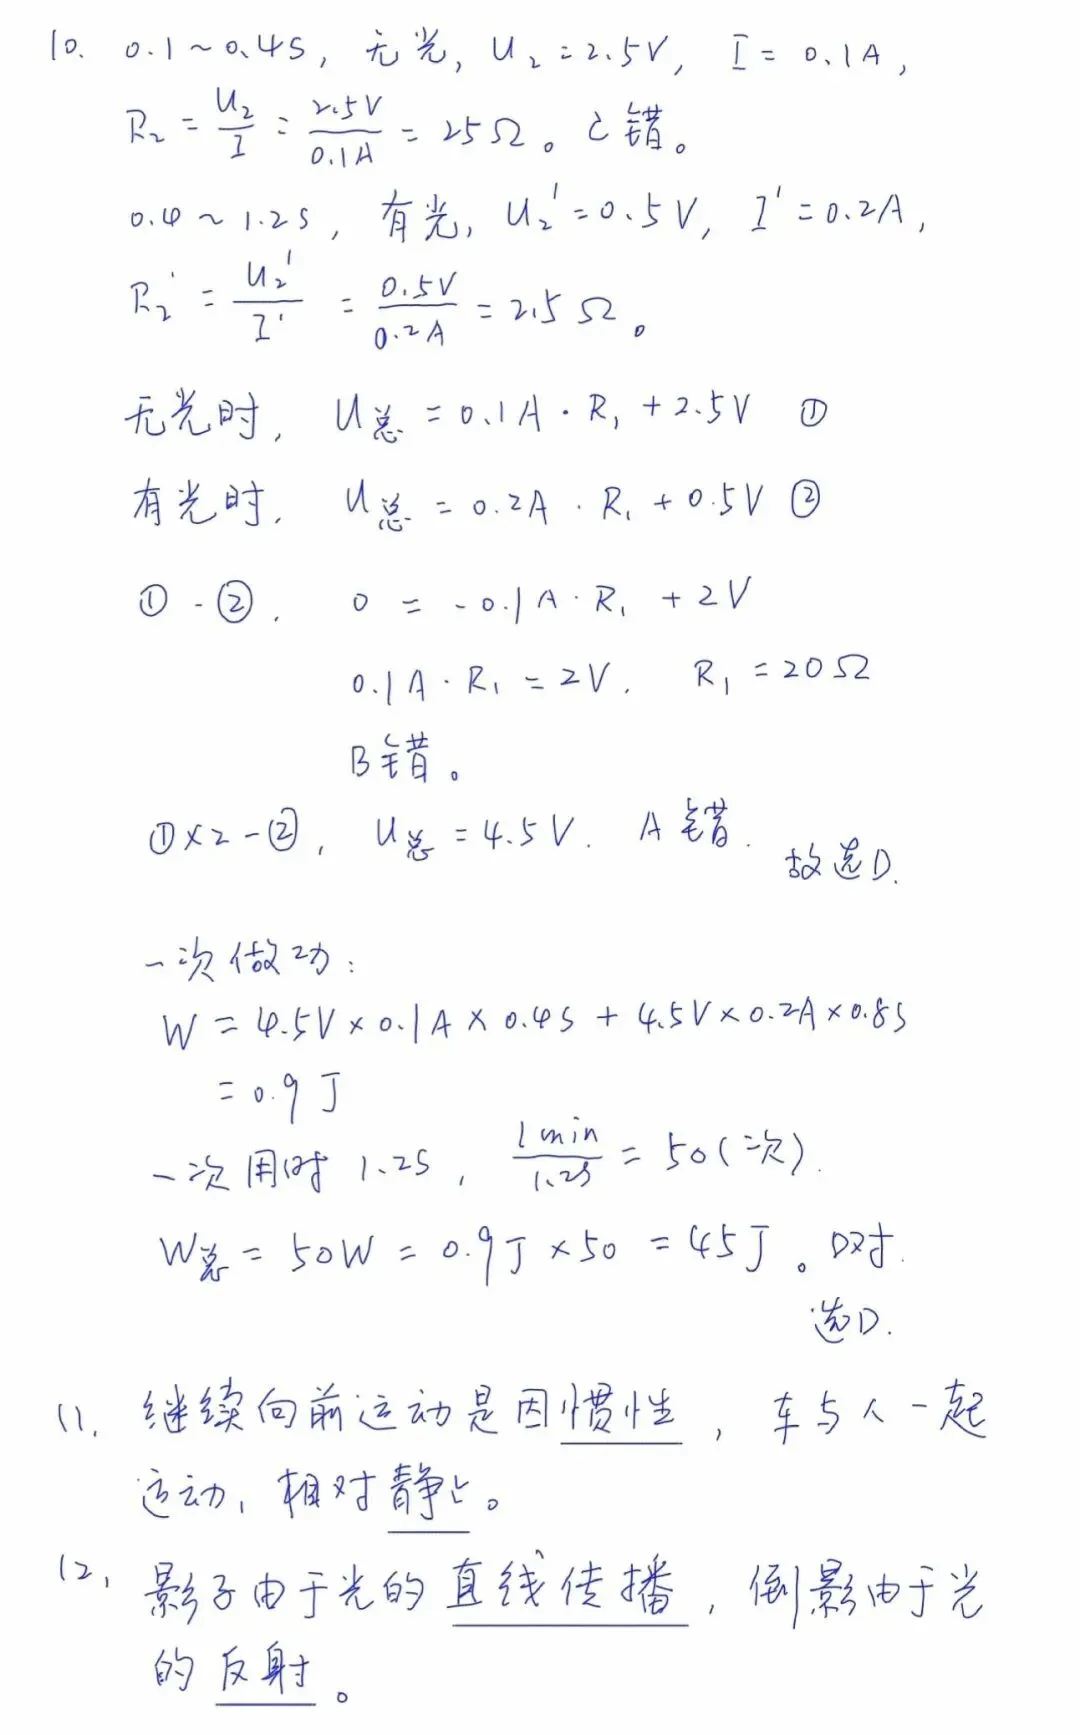 10. 0.1~0.4S, 无光, U₂=2.5V, I=0.1A,
R₂ = U₂/I = 2.5V/0.1A = 25Ω。C错。
0.4~1.2S, 有光, U₂'=0.5V, I'=0.2A,
R₂' = U₂'/I' = 0.5V/0.2A = 2.5Ω。
无光时, U总=0.1A·R₁+2.5V ①
有光时. U总=0.2A·R₁+0.5V ②
①-②. 0 = -0.1A·R₁+2V
0.1A·R₁=2V. R₁=20Ω
B错。
①×2-②, U总=4.5V. A错. 故选D.
一次做功:
W = 4.5V×0.1A×0.4S+4.5V×0.2A×0.8S
=0.9J
一次用时1.2S, 1min/1.2S=50(次).
W总=50W=0.9J×50=45J。D对.
选D.
11. 继续向前运动是因惯性, 车与人一起
运动, 相对静止。
12, 影子由于光的直线传播, 倒影由于光
的反射。